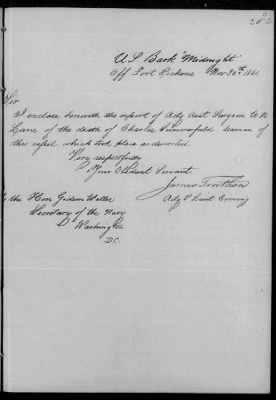 U.S Bark "Midnight"
Off Fort Pickens Nov 30th 1861.
Sir
I enclose herewith the report of Actg Asst Surgeon W. N
Lane of the death of Charles seaman of
this vessel which took place as described.
Very respectfully
Your Obedient Servant.
James Trathen
Actg V Lieut Comdg
To the Hon Gideon Welles
Secretary of the Navy
Washington
D.C.